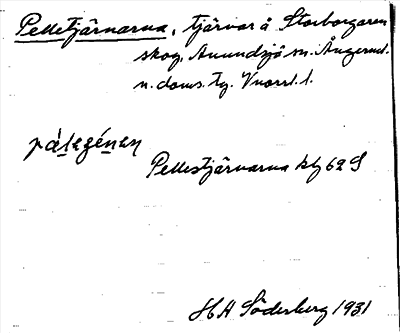 Pelletjärnarna, tjärnar å Storborgaren
skog, Anundsjö sn. Ångerml.
n. doms. tg. Vnorrl. l.
Pellestjärnarna kbl 62 S
H A Söderberg 1931